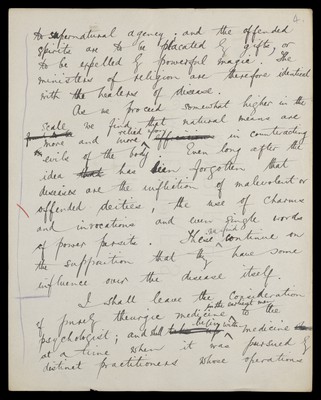 to supernatural agency, and the offended
spirits are to be placated by gifts, or
to be expelled by powerful magic. The
ministers of religion are therefore identical
with the healers of disease.
As we proceed somewhat higher in the
scale we find that natural means are
more and more relied upon in counteracting
evils of the body. Even long after the
idea that has been forgotten that
diseases are the infliction of malevolent or
offended deities, the use of charms
and invocations and even single words
of power persists. These continue on
the supposition that they have some
influence over the disease itself.
I shall leave the consideration
of purely theurgic medicine to the
psychologist; and shall begin with medicine
in the earliest
at a time when it was pursued by
distinct practitioners whose operations